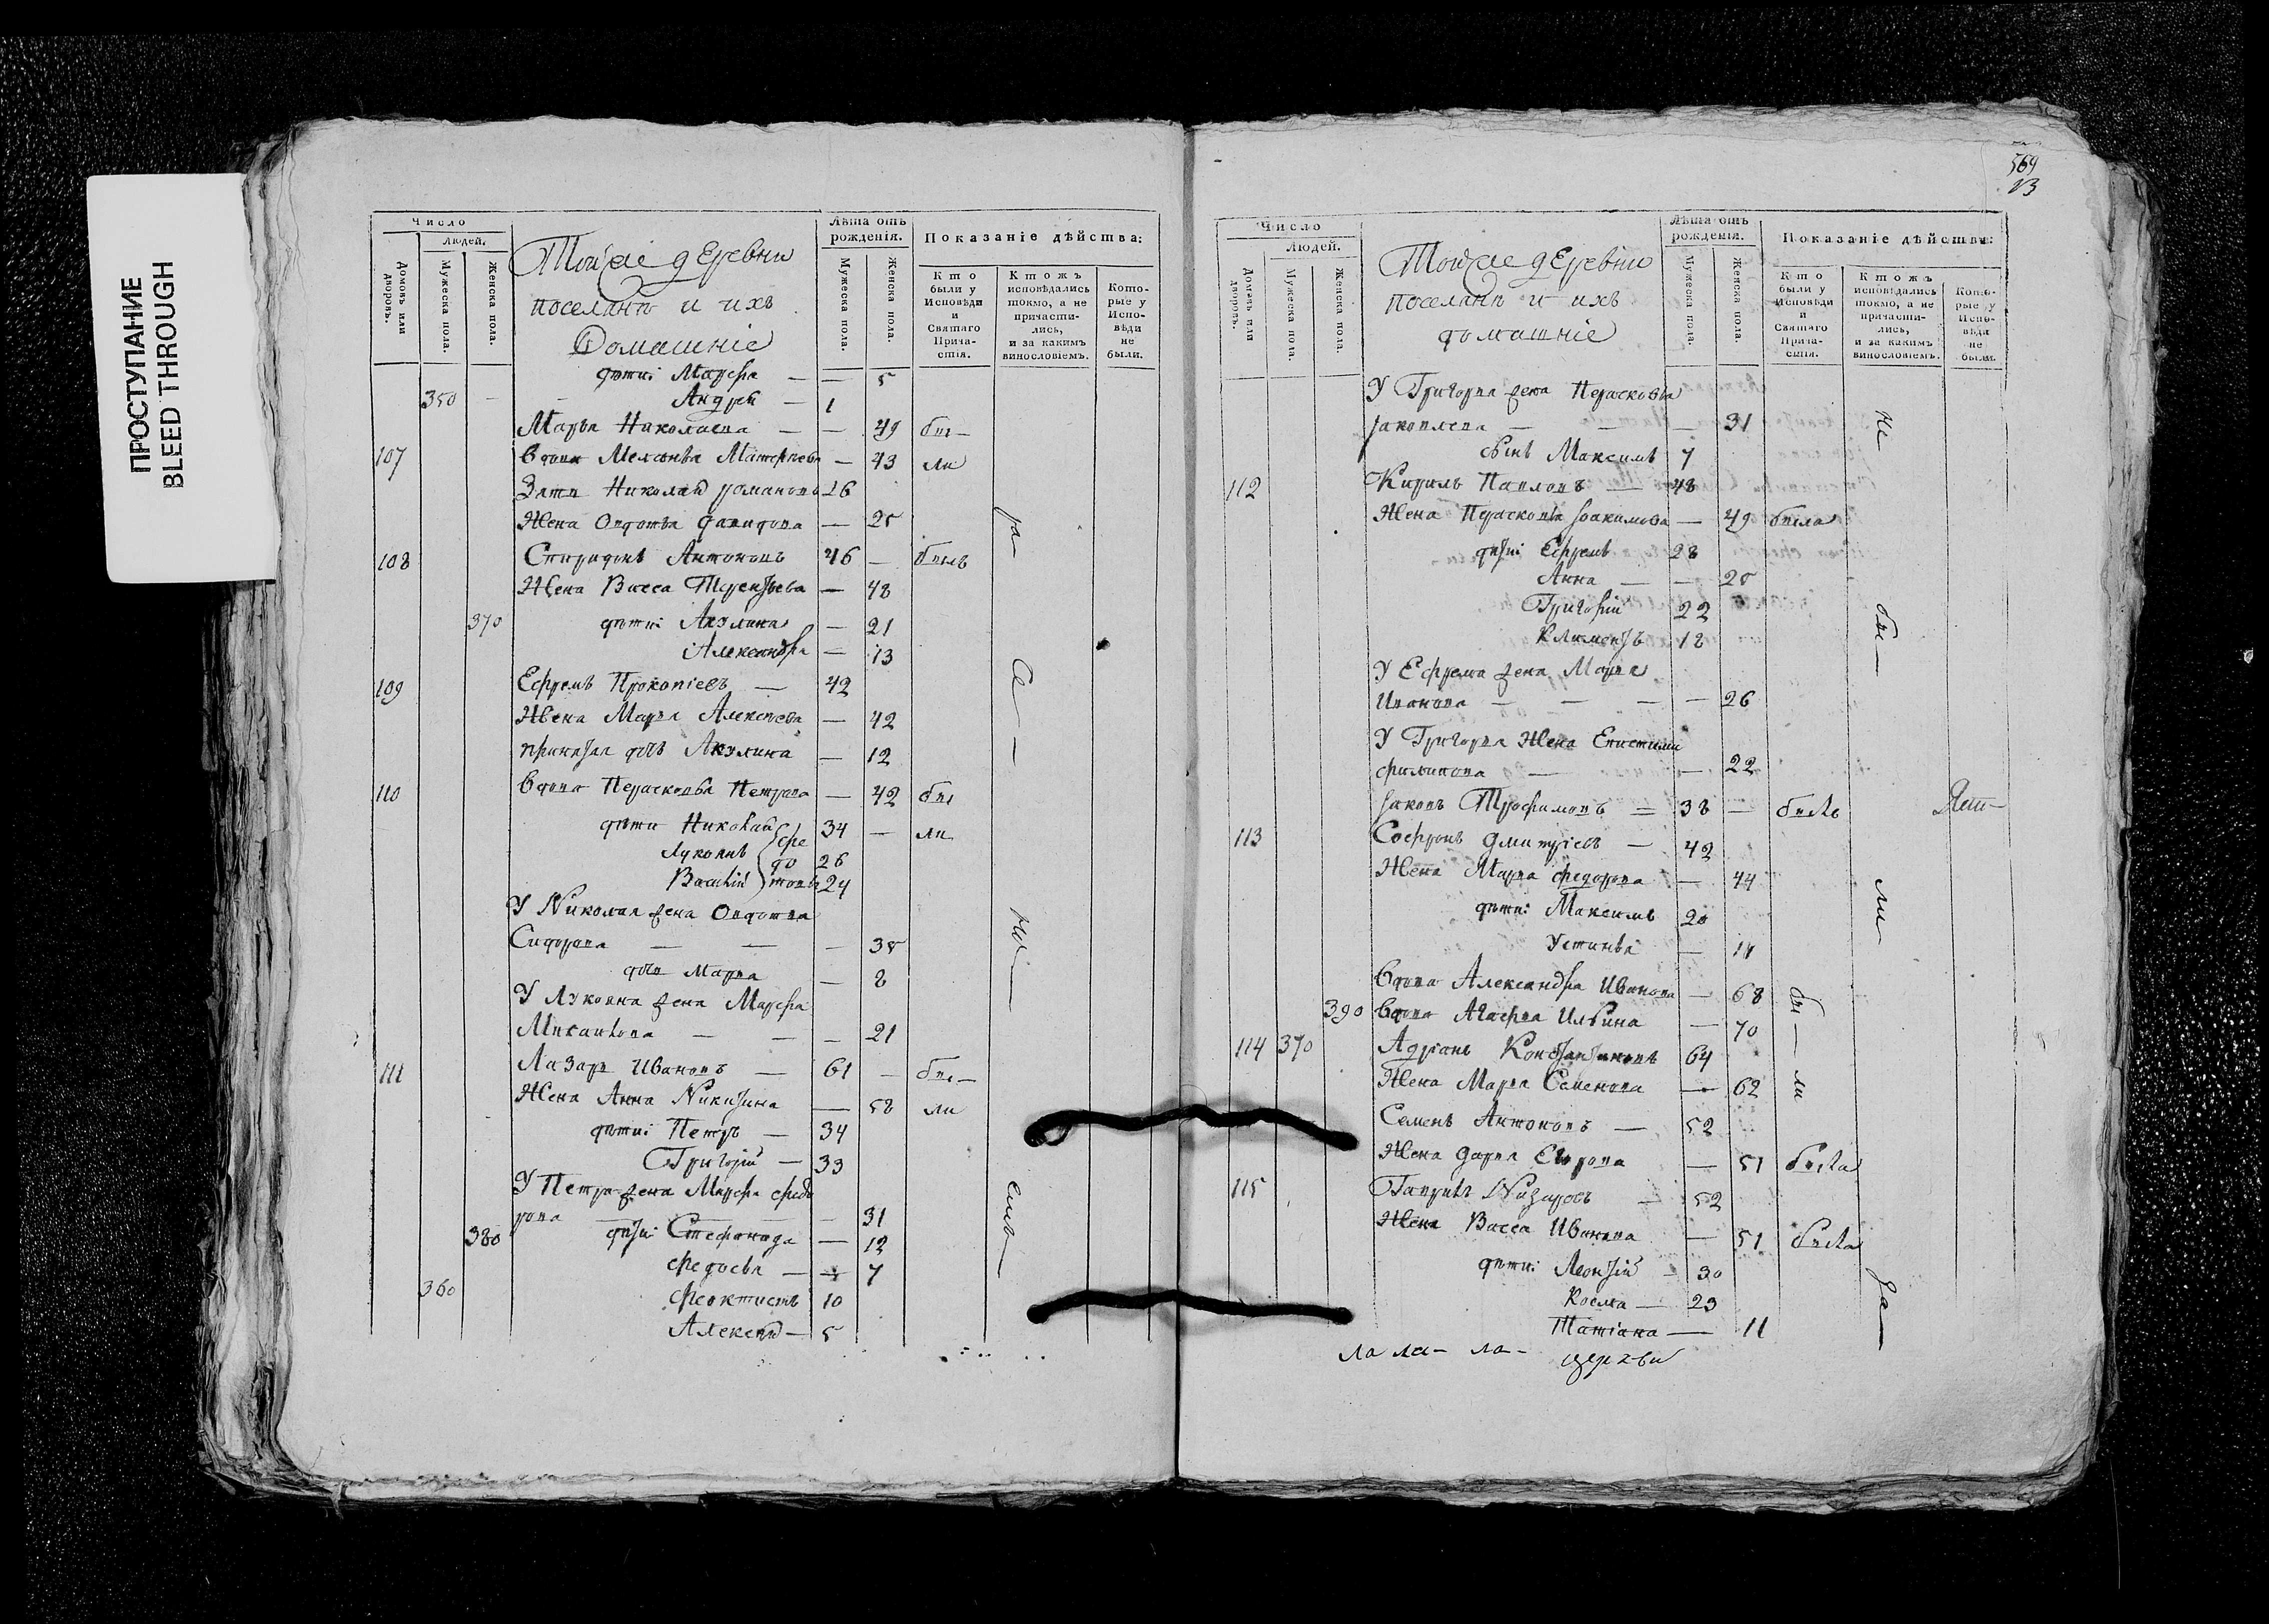 ПРОСТУПАНИЕ
BLEED THROUGH
Число
людей.
Домовъ или дворовъ.
Мужеска пола.
Женска пола.
Тойже деревни
поселянъ и ихъ
Домашніе
Лѣта отъ рожденія.
Мужеска пола.
Женска пола.
Показаніе дѣйства:
Кто были у Исповѣди и Святаго Причастія.
Ктожъ исповѣдались токмо, а не причастились, и за какимъ винословіемъ.
Которые у Исповѣди не были.
дѣти: Марфа — — 5
350 — — Андрей — 1
Марья Николаева — — 49 бы—
107 вдова Меланья — 43 ли
Зять Николай романовъ 26
Жена Овдотья давидова — 25
108 Спиридонъ Антоновъ 46 — былъ
Жена Васса Терентьева — 48
370 дѣти: Акулина — 21
Александра — 13
109 Ефремъ Прокопіевъ — 42
Жена Марья Алексѣева — 42
дочь Акулина — 12
110 вдова Парасковья Петрова — 42 бы
дѣти Николай 34 — ли
Лукоянъ 26
Василій 24
фе
до
товы
У Николая жена Овдотья
Сидорова — — — 35
дочь Марья — 8
У Лукояна жена Марфа
Михайлова — — — 21
111 Лазарь Ивановъ — 61 — бы—
Жена Анна Никитина — 58 ли
дѣти: Петръ — 34
Григорій — 33
У Петра жена Марфа федо
рова — 31
380 дѣти: Стефанида — 12
федосья — — 7
360 феоктистъ 10
Алексѣй — 5
569
Число
людей.
Домовъ или дворовъ.
Мужеска пола.
Женска пола.
Тойже деревни
поселянъ и ихъ
домашніе
Лѣта отъ рожденія.
Мужеска пола.
Женска пола.
Показаніе дѣйства:
Кто были у Исповѣди и Святаго Причастія.
Ктожъ исповѣдались токмо, а не причастились, и за какимъ винословіемъ.
Которые у Исповѣди не были.
У Григорья жена Парасковья
яковлева — — — 31
сынъ Максимъ 7
112 Кирилъ Павловъ — 48
Жена Парасковья Іоакимова — 49 была
дѣти: Ефремъ 28
Анна — — 25
Григорій 22
Климентъ 18
У Ефрема жена Марья
Иванова — — — — 26
У Григорья Жена Епистимия
филипова — — 22
яковъ Трофимовъ — 38 — былъ
113 Софронъ Дмитріевъ — 42
Жена Марья федорова — 44
дѣти: Максимъ 20
Устинья — 14
вдова Александра Иванова — 68 бы—
390 вдова Агафья Ильина — 70
114 370 Адріанъ Константиновъ 64
Жена Марья Семенова — 62 ли
Семенъ Антоновъ — 52
Жена дарья Егорова — 51 была
115 Гаврилъ Назаровъ — 52
Жена Васса Иванова — 51 была
дѣти: Леонтій — 30
Косма — 23
Татіана — 11
не бы— ли
за—